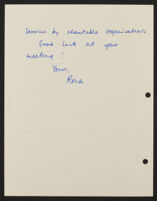 services by charitable organisations.
Good luck at your
meeting!
Yours,
René.